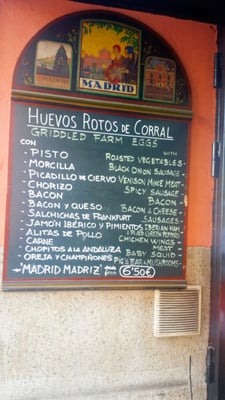 MADRID
MADRID
HUEVOS ROTOS DE CORRAL
GRIDDLED FARM EGGS
CON WITH
- PISTO ROASTED VEGETABLES -
- MORCILLA BLACK ONION SAUSAGE -
- PICADILLO DE CIERVO VENISON MIKE MEAT
- CHORIZO SPICY SAUSAGE
- BACON BACON -
- BACON Y QUESO BACON & CHEESE -
- SALCHICHAS DE FRANKFURT SAUSAGES -
- JAMÓN IBÉRICO Y PIMIENTOS IBERIAN HAM & FRIED GREEN PEPPERS
- ALITAS DE POLLO CHICKEN WINGS -
- CARNE MEAT -
- CHOPITOS A LA ANDALUZA BABY SQUID -
- OREJA Y CHAMPIÑONES PIG'S EAR & MUSHROOMS -
"MADRID MADRIZ" 6'50€